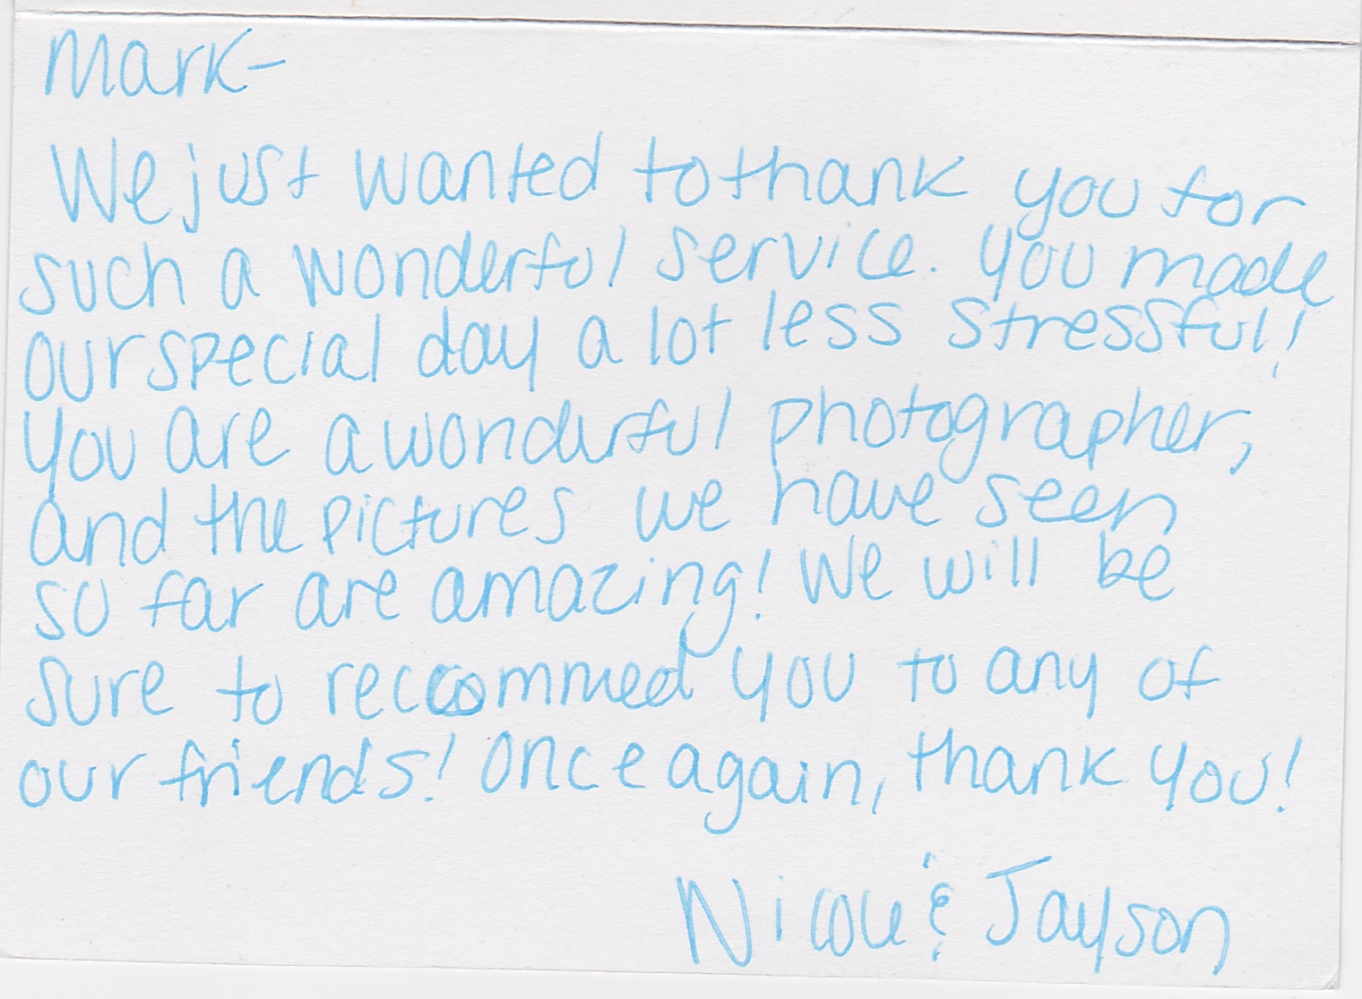 Mark-
We just wanted to thank you for
such a wonderful service. You made
our special day a lot less stressful!
You are a wonderful photographer,
and the pictures we have seen
so far are amazing! We will be
sure to reccommed you to any of
our friends! Once again, thank you!
Nicole & Jayson